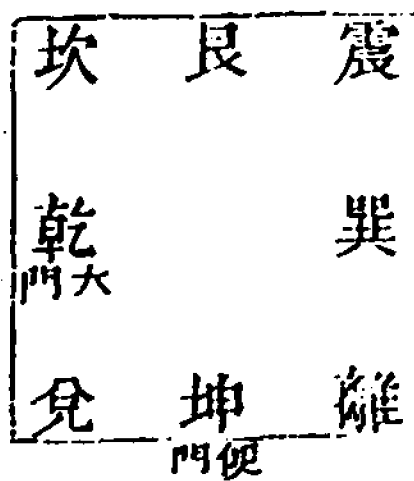 震 艮 坎
巽 乾
大門
離 坤 兌
便門